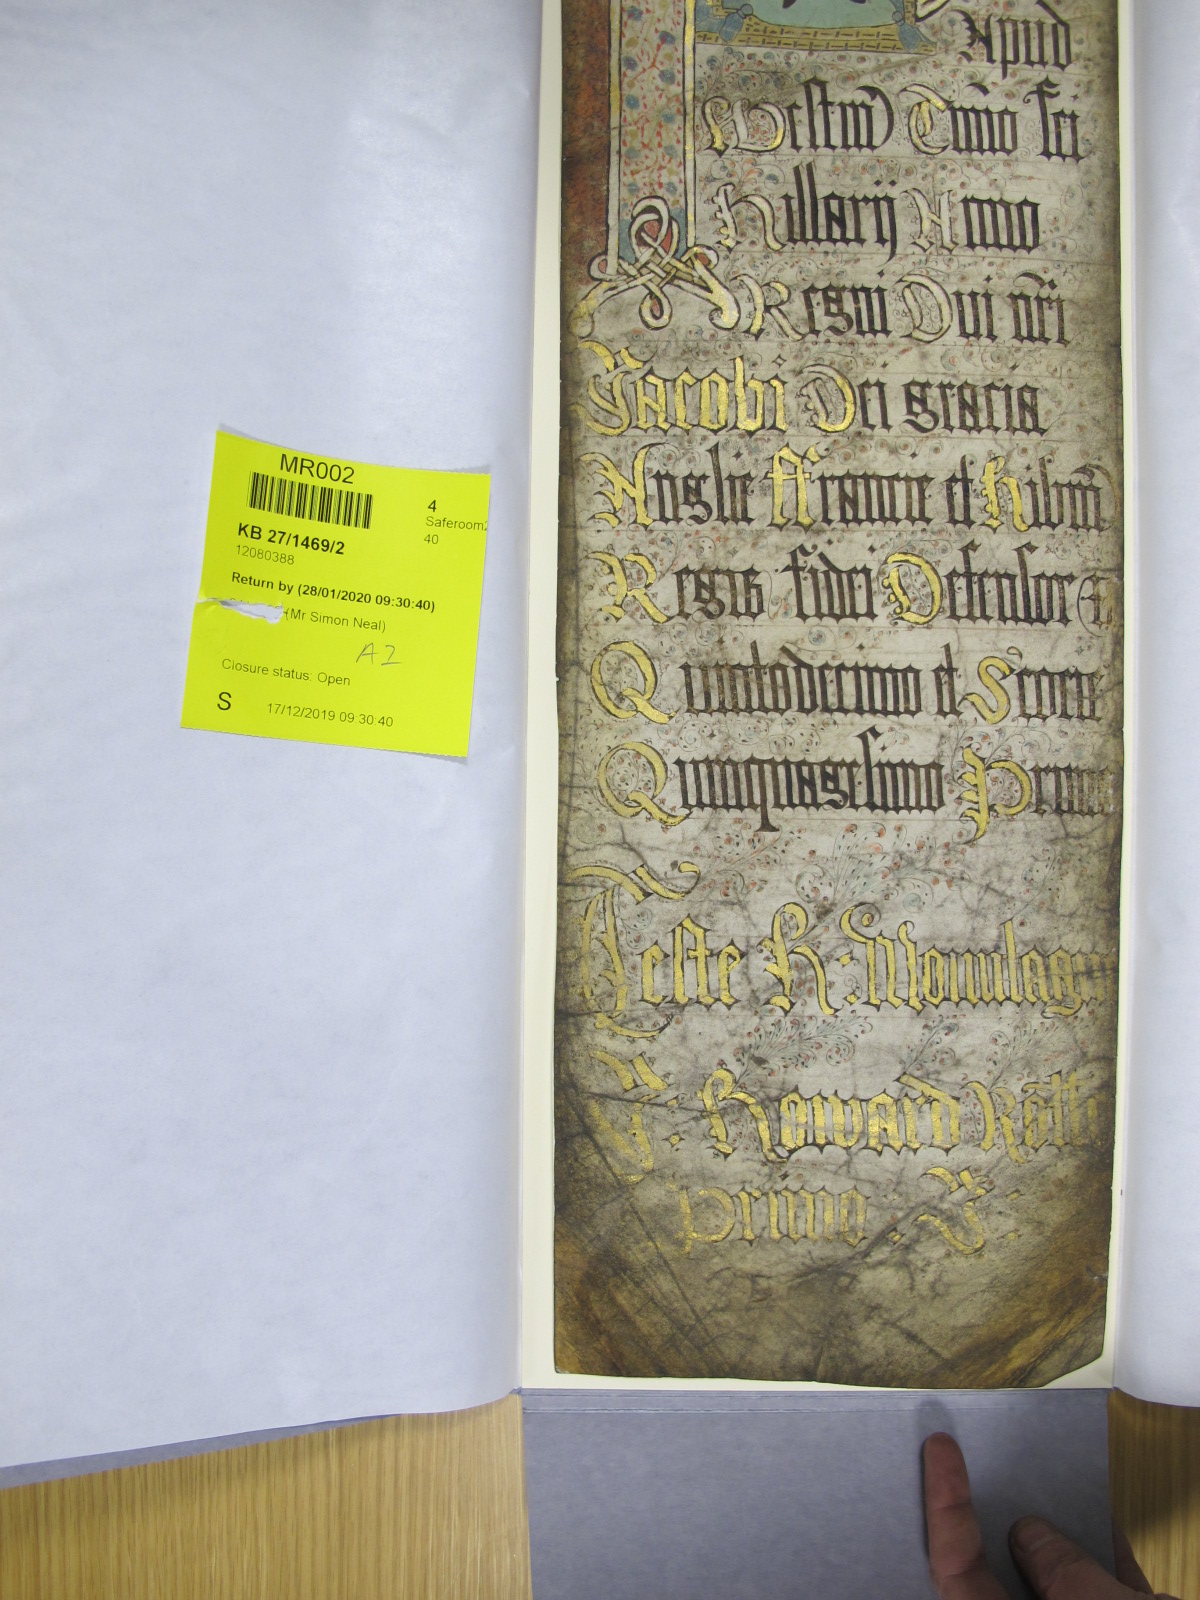 MR002
4
Saferoom2
40
KB 27/1469/2
12080388
Return by (28/01/2020 09:30:40)
(Mr Simon Neal)
A2
Closure status: Open
S 17/12/2019 09:30:40
Apud
Westm̄ Tm̄io sci
Hillarij Anno
Regni Dni nr̄i
Jacobi Dei gracia
Anglie Francie et Hibn̄
Regis fidei Defensor
Quintodecimo et Scocie
Quinquagesimo Primo
Teste H: Mountagu
J: Howard Rot̄li
primo: J: